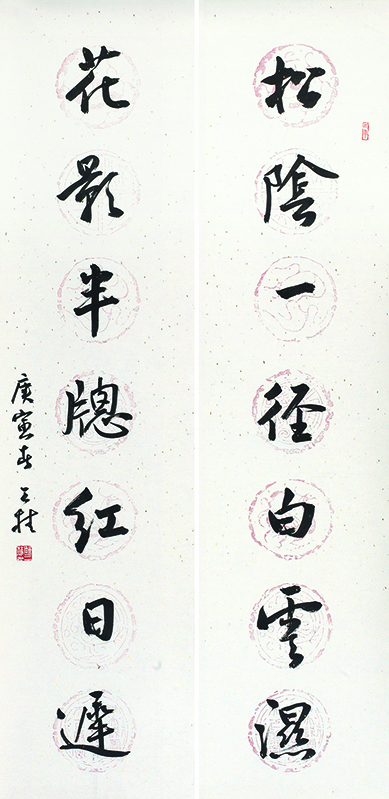 松陰一径白雲濕
花影半牎紅日遲
庚寅春